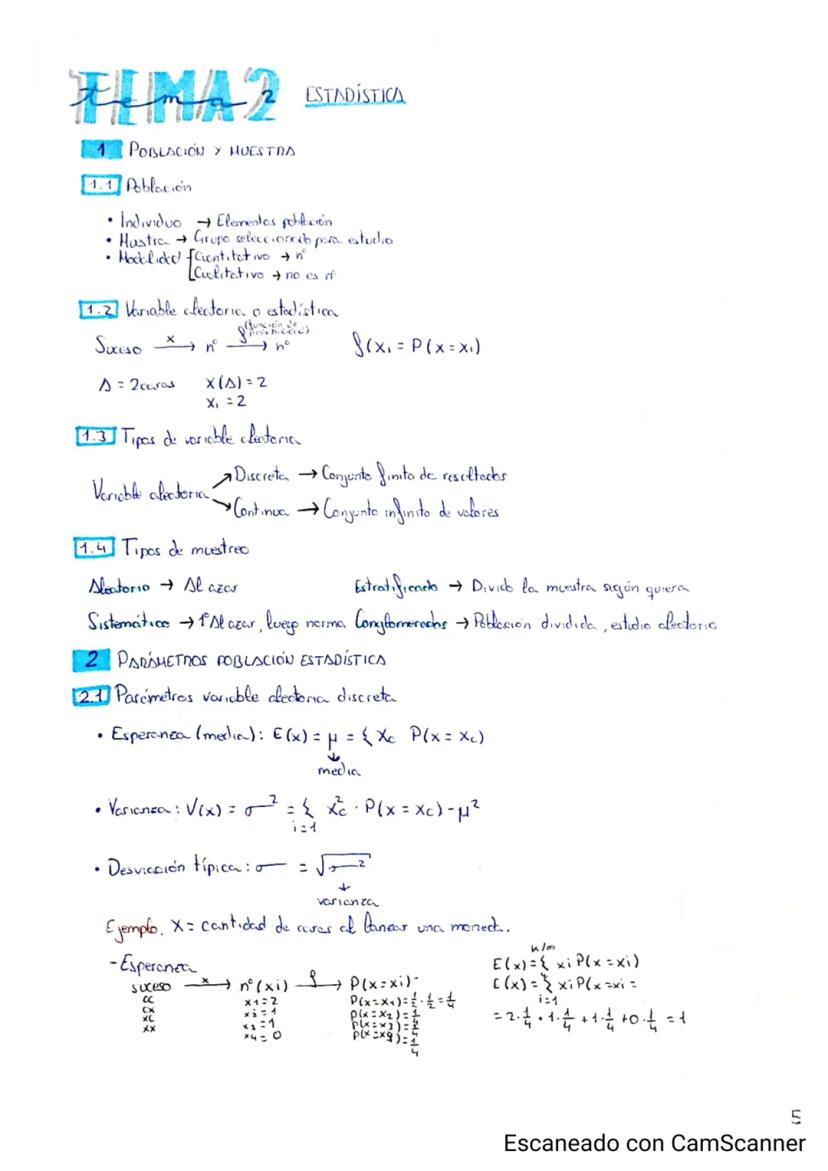 TEMA 2 ESTADÍSTICA
tema 2
1 POBLACIÓN Y MUESTRA
1.1 Población
• Individuo → Elementos población
• Mustra → Grupo seleccionado para estudio
• Modalidad { Cuantitativo → nº
Cualitativo → no es nº
1.2 Variable aleatoria o estadística
Suceso —x→ nº —f (función de probabilidad)→ nº f(x₁ = P(x = x₁)
A = 2 caras X(A) = 2
X₁ = 2
1.3 Tipos de variable aleatoria
Variable aleatoria
↗ Discreta → Conjunto finito de resultados
↘ Continua → Conjunto infinito de valores
1.4 Tipos de muestreo
Aleatorio → Al azar Estratificando → Divido la muestra según quiera
Sistemático → 1º Al azar, luego norma Conglomerados → Población dividida, estudio aleatorio
2 PARÁMETROS POBLACIÓN ESTADÍSTICA
2.1 Parámetros variable aleatoria discreta
• Esperanza (media): E(x) = μ = { Xc P(x = Xc)
↓
media
• Varianza: V(x) = σ² = { x²c · P(x = xc) - μ²
i=1
• Desviación típica: σ = √σ²
↓
varianza
Ejemplo. X = cantidad de caras al lanzar una moneda.
- Esperanza
suceso —x→ nº (xi) —f→ P(x=xi)
cc x1=2 P(x=x1)=½·½=¼
cx x2=1 P(x=x2)=¼
xc x3=1 P(x=x3)=¼
xx x4=0 P(x=x4)=¼
n/∞
E(x)={ xi P(x=xi)
E(x)={ xi P(x=xi =
i=1
=2·¼+1·¼+1·¼+0·¼=1
5
Escaneado con CamScanner